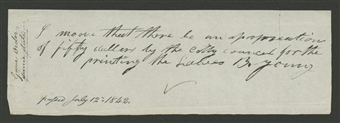 I move that there be an appropriation
of fifty dollars by the City Council for the
printing the Laws B. Young
passed July 12th 1842.